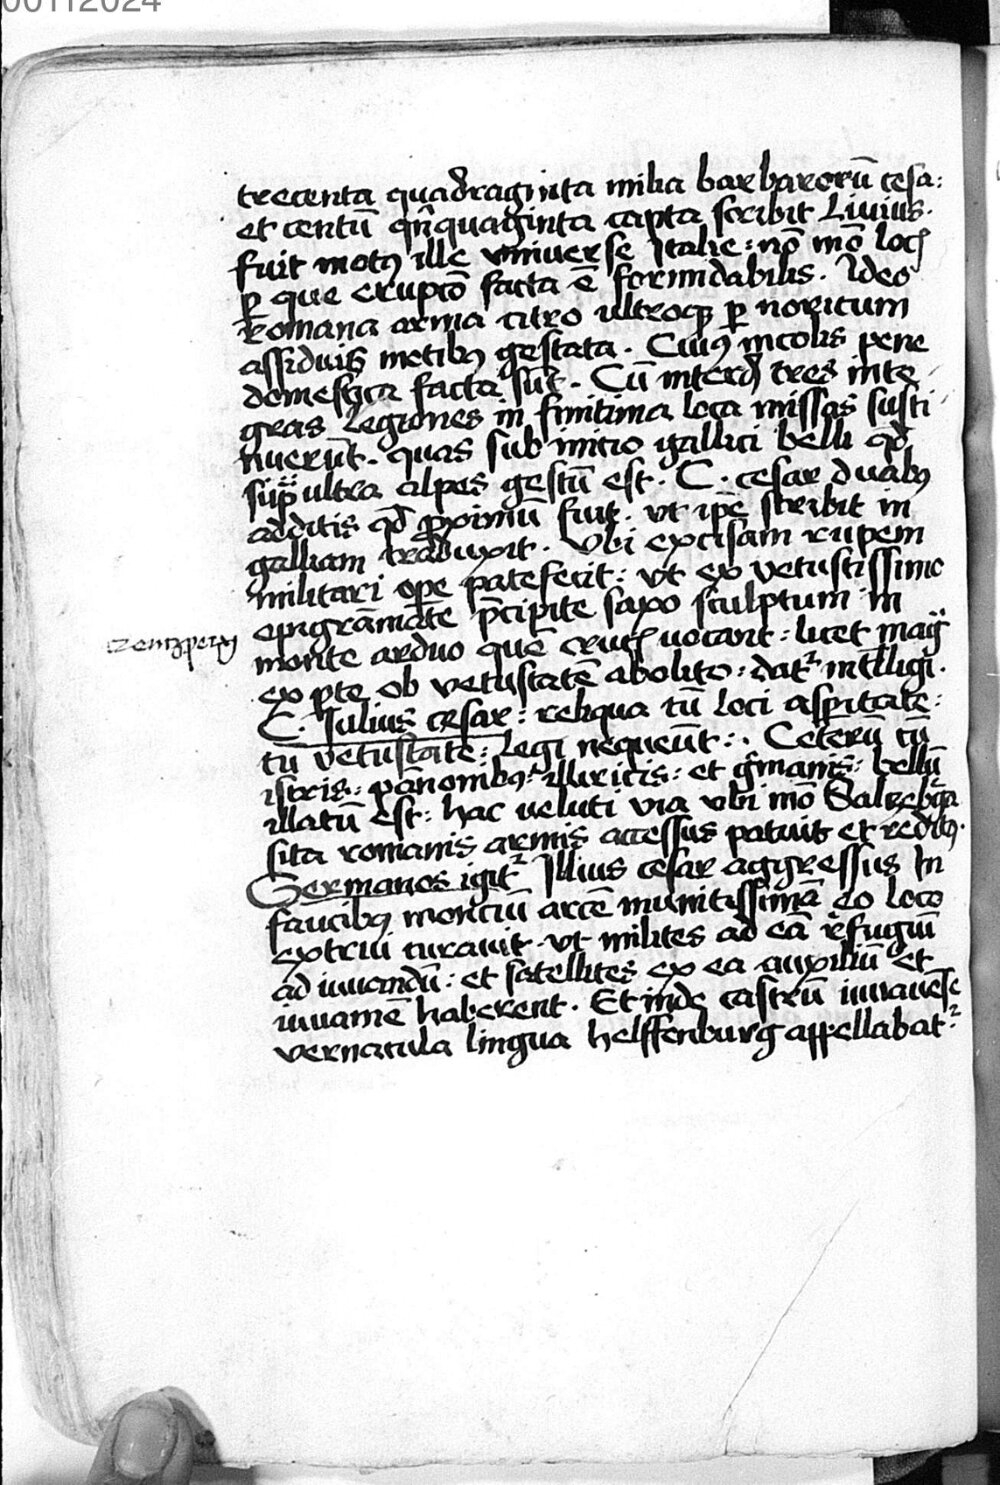 00112024
trecenta quadraginta milia barbarorū cesa:
et centū qn̄quaginta capta scribit Liuius.
fuit motꝯ ille vniuerse Italie: nō mō loci
ꝑ que eruptō facta ē formidabilis. Ideo
romana arma citro ultroqꝫ ꝑ noricum
assiduis metibꝯ gestata. Cuiꝯ incolis pene
domestica facta sūt. Cū interdū tres inte
gras Legiones in finitima loca missas susti
nuerūt. quas sub initio gallici belli qd̄
sup̄ ultra alpes gestū est. C. cesar duabꝯ
additis qd̄ ꝓximū fuit. vt ip̄e scribit in
galliam traduxit. Vbi excisam rupem
militari ope patefecit: vt ex vetustissimo
epigrāmate p̄cipite saxo sculptum in
monte arduo quē crucē uocant: licet mag
ex ꝑte ob vetustatē abolito: datʳ intelligi.
C. Iulius cesar: reliqua tū loci asperitate:
tū vetustate: legi nequeūt:. Ceterū cū
istris: panonibꝯ: illiricis: et gˀmanis: bellū
illatū est: hac ueluti via vbi mō Salzebˀga
sita romanis armis accessus patuit et reditꝯ.
Germanos igitʳ Illius cesar aggressus In
faucibꝯ monciū arcē munitissimā eo loco
extrui curauit. vt milites ad eā refugiū
ad iuuandū: et satellites ex ea auxiliū et
iuuamē haberent. Et inde castrū iuuauēse
vernacula lingua helffenburg appellabatʳ